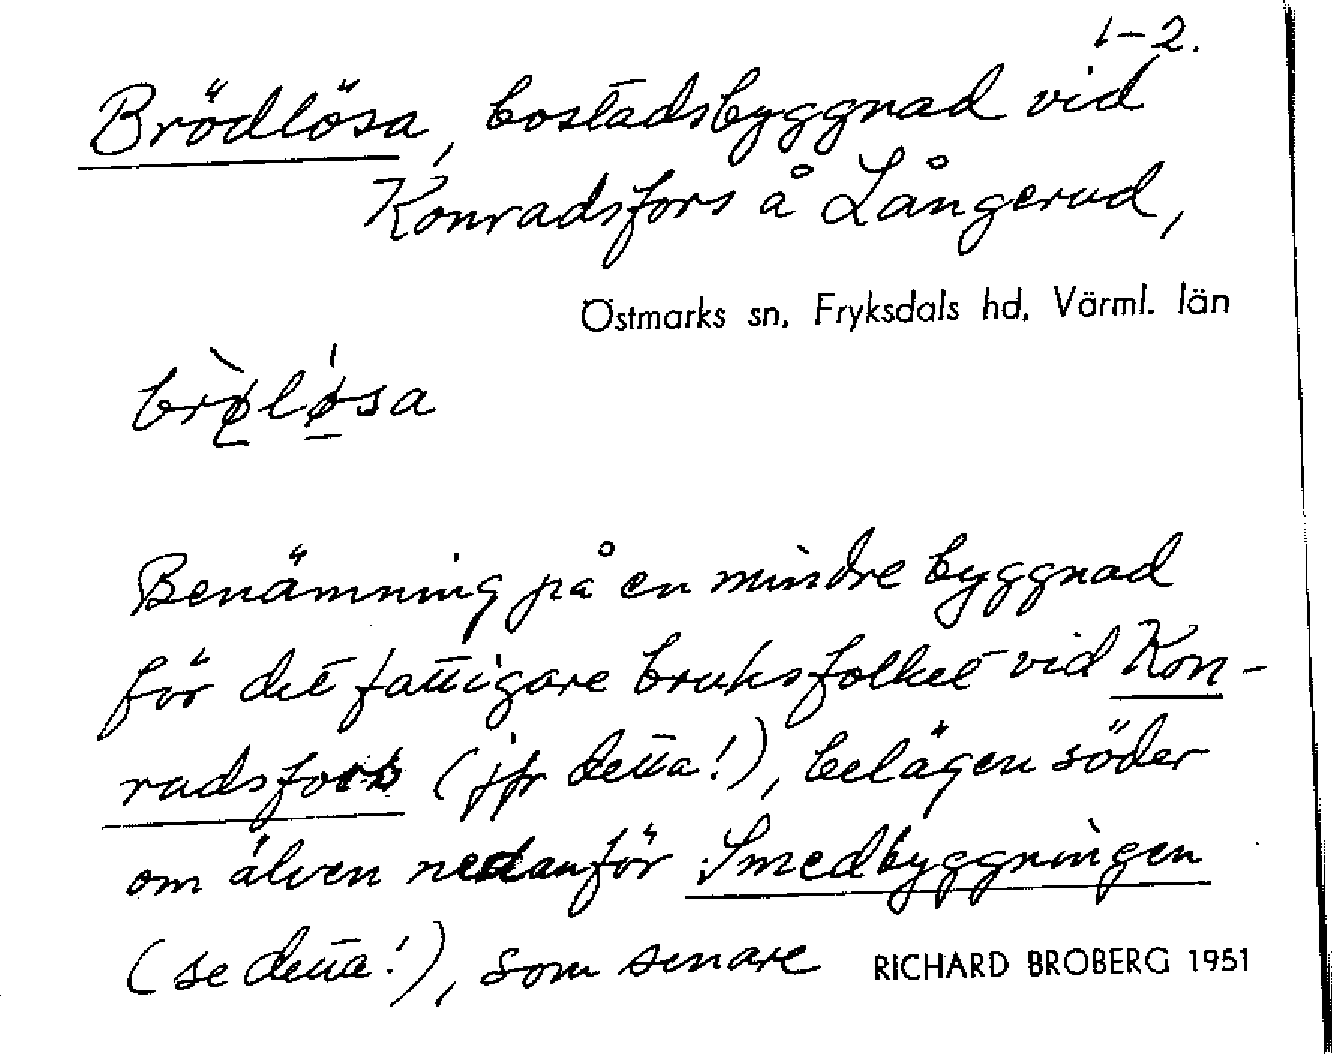 1-2.
Brödlösa, bostadsbyggnad vid
Konradsfors å Långerud,
Östmarks sn, Fryksdals hd, Värml. län
brø̀lǿsa
Benämning på en mindre byggnad
för det fattigare bruksfolket vid Kon-
radsfors (jfr detta!), belägen söder
om älven nedanför Smedbyggningen
(se detta!), som senare
RICHARD BROBERG 1951